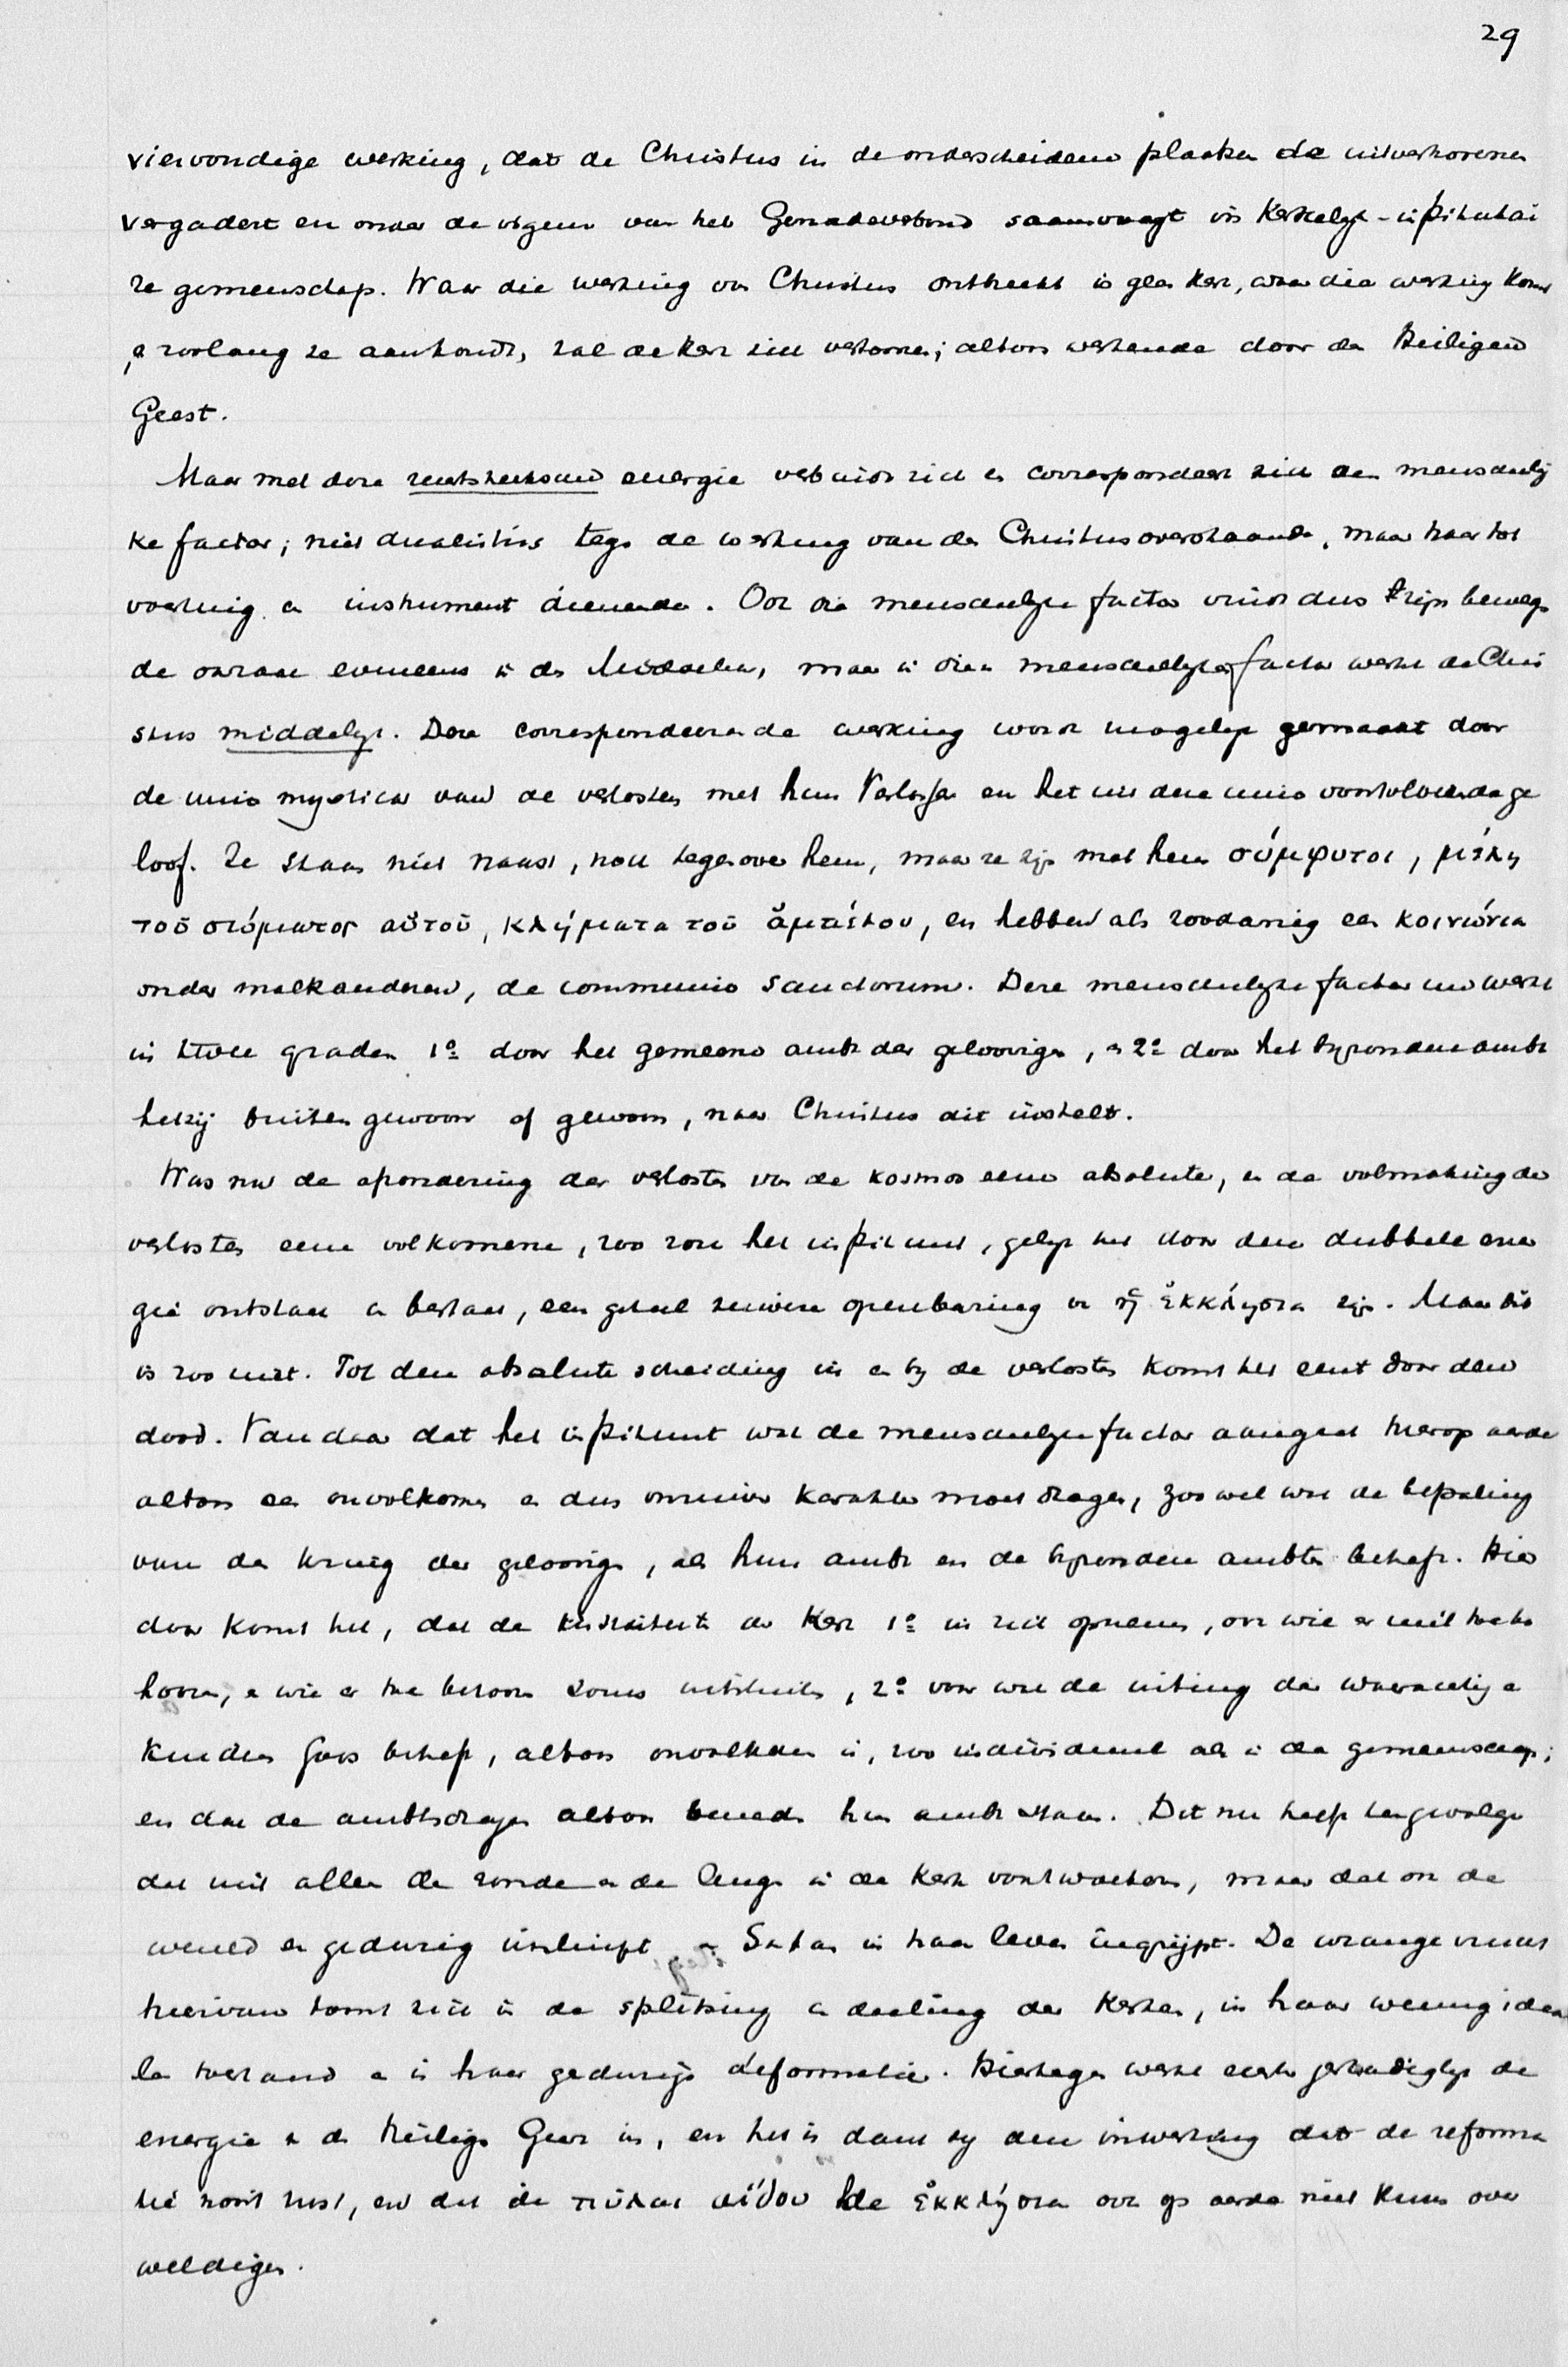 29
viervoudige werking, dat de Christus in de onderscheidene plaatsen de uitverkorenen
vergadert en onder de vigeur van het Genadeverbond saamvoegt in Kerkelijk-institutai
re gemeenschap. Waar die werking van Christus ontbreekt is geen Kerk, waar die werking komt
en zoolang ze aanhoudt, zal de Kerk zich vertoonen; altoos werkende door den Heiligen
Geest.
Maar met deze rechtstreeksche energie verbindt zich en correspondeert zich een menschelij
ke factor; niet dualistisch tegen de werking van den Christus overstaande, maar haar tot
voertuig en instrument dienende. Ook die menschelijke factor vindt dus zijn bewegen
de oorzaak eveneens in den Middelaar, maar in dien menschelijken factor werkt de Chri
stus middelijk. Deze correspondeerende werking wordt mogelijk gemaakt door
de unio mystica van de verlosten met hun Verlosser en het uit deze unio voortvloeiende ge
loof. Ze staan niet naast, noch tegenover hem, maar ze zijn met hem σύμφυτοι, μέλη
τοῦ σώματος αὐτοῦ, κλήματα τοῦ ἀμπέλου, en hebben als zoodanig een κοινωνία
onder malkanderen, de communio sanctorum. Deze menschelijke factor nu werkt
in twee graden 1º door het gemeene ambt der geloovigen, en 2º door het bijzondere ambt
hetzij buitengewoon of gewoon, naar Christus dit instelt.
Was nu de afzondering der verlosten van de kosmos eene absolute, en de volmaking der
verlosten eene volkomene, zoo zou het instituut, gelijk het door deze dubbele ener
gie ontstaat en bestaat, een geheel zuivere openbaring van ἡ ἐκκλησία zijn. Maar dit
is zoo niet. Tot deze absolute scheiding in en bij de verlosten komt het eerst door den
dood. Vandaar dat het instituut wat de menschelijke factor aangaat hier op aarde
altoos een onvolkomen en dus onzuiver karakter moet dragen, zoowel wat de bepaling
van den kring der geloovigen, als hun ambt en de bijzondere ambten betreft. Hier
door komt het, dat de instituten der Kerk 1º in zich opnemen, ook wie er niet toebe
hooren, en wie er toe behooren soms uitsluiten, 2º voor wat de uiting der waarachtige
kinderen Gods betreft, altoos onvolkomen is, zoo individueel als in de gemeenschap;
en dat de ambtsdragers altoos beneden hun ambt staan. Dit nu heeft tengevolge
dat niet alleen de zonde en de leugen in de Kerk voortwoekert, maar dat ook de
wereld er gedurig insluipt en Satan in haar leven ingrijpt. De wrange vrucht
hiervan toont zich in de splitsing en deeling der Kerken, in haar weinig idea
le toestand en in haar gedurige deformatie. Hiertegen werkt echter gestadiglijk de
energie van den Heiligen Geest in, en het is dank zij deze inwerking dat de reforma
tie nooit rust, en dat de πύλαι ᾅδου de ἐκκλησία ook op aarde niet kunnen over
weldigen.